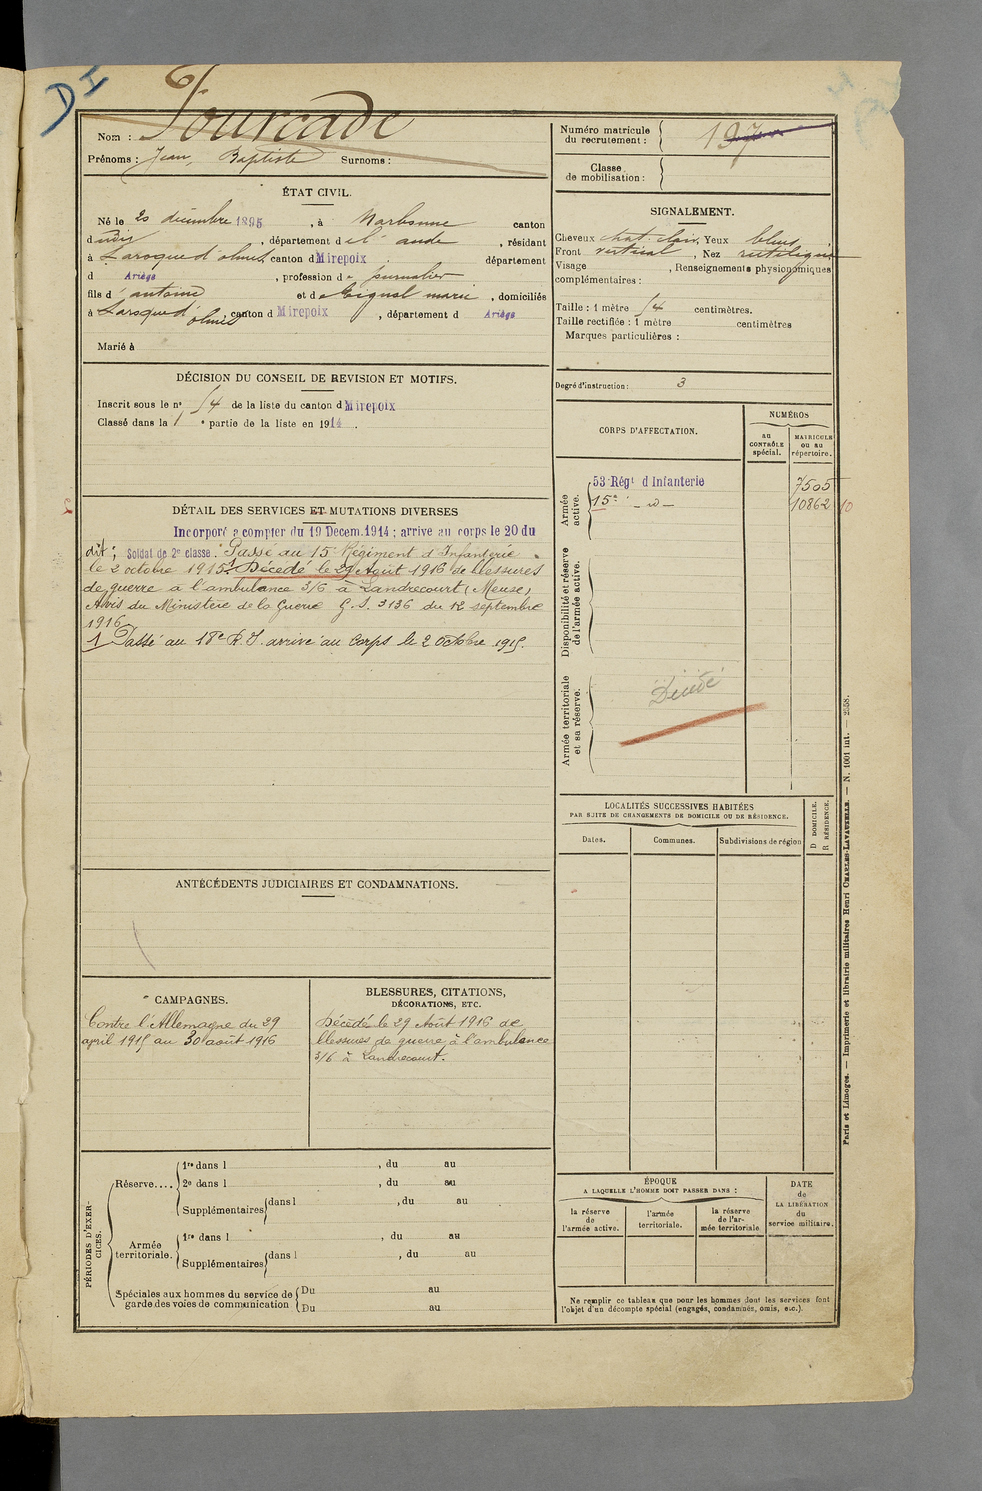 DI
Nom : Fourcade
Prénoms : Jean, Baptiste Surnoms :
ÉTAT CIVIL.
Né le 20 décembre 1895, à Narbonne canton
d udis, département d e l'aude, résidant
à Laroque d'olmes canton d Mirepoix département
d Ariège, profession d e journalier
fils d' antoine et d e Miquel marie, domiciliés
à Laroque d'olmes canton d Mirepoix, département d Ariège
Marié à
DÉCISION DU CONSEIL DE REVISION ET MOTIFS.
Inscrit sous le n° 54 de la liste du canton d Mirepoix
Classé dans la 1 e partie de la liste en 1914.
DÉTAIL DES SERVICES ET MUTATIONS DIVERSES
Incorporé a compter du 19 Decem. 1914 ; arrive au corps le 20 du
dit ; Soldat de 2e classe. Passé au 15e Régiment d'Infanterie
le 2 octobre 1915. 1 Décédé le 29 Août 1916 de blessures
de guerre à l'ambulance 3/6 à Landrecourt (Meuse)
Avis du Ministère de la Guerre G. S. 3136 du 12 septembre
1916
1 Passé au 18e R. I. arrivé au Corps le 2 Octobre 1915.
ANTÉCÉDENTS JUDICIAIRES ET CONDAMNATIONS.
CAMPAGNES.
Contre l'Allemagne du 29
april 1915 au 30 août 1916
BLESSURES, CITATIONS,
DÉCORATIONS, ETC.
Décédé le 29 Août 1916 de
blessures de guerre, à l'ambulance
3/6 à Landrecourt.
PÉRIODES D'EXERCICES.
Réserve....
1re dans l , du au
2e dans l , du au
Supplémentaires dans l , du au
Armée territoriale.
1re dans l , du au
Supplémentaires dans l , du au
Spéciales aux hommes du service de Du au
garde des voies de communication Du au
Numéro matricule
du recrutement : 197
Classe
de mobilisation :
SIGNALEMENT.
Cheveux chat. clair, Yeux bleus
Front vertical, Nez rectiligne
Visage , Renseignements physiognomiques
complémentaires :
Taille : 1 mètre 54 centimètres.
Taille rectifiée : 1 mètre centimètres
Marques particulières :
Degré d'instruction : 3
CORPS D'AFFECTATION.
NUMÉROS
au
CONTRÔLE
spécial.
MATRICULE
ou au
répertoire.
Armée
active.
53 Régt d Infanterie 7505
15e - id - 10862 10
Disponibilité et réserve
de l'armée active.
Armée territoriale
et sa réserve.
Décédé
LOCALITÉS SUCCESSIVES HABITÉES
PAR SUITE DE CHANGEMENTS DE DOMICILE OU DE RÉSIDENCE.
Dates.
Communes.
Subdivisions de région
D DOMICILE.
R RÉSIDENCE.
ÉPOQUE
A LAQUELLE L'HOMME DOIT PASSER DANS :
la réserve
de
l'armée active.
l'armée
territoriale.
la réserve
de l'ar-
mée territoriale
DATE
de
LA LIBÉRATION
du
service militaire.
Ne remplir ce tableau que pour les hommes dont les services font
l'objet d'un décompte spécial (engagés, condamnés, omis, etc.).
Paris et Limoges. — Imprimerie et librairie militaires Henri CHARLES-LAVAUZELLE. — N. 1001 int. — 2558.